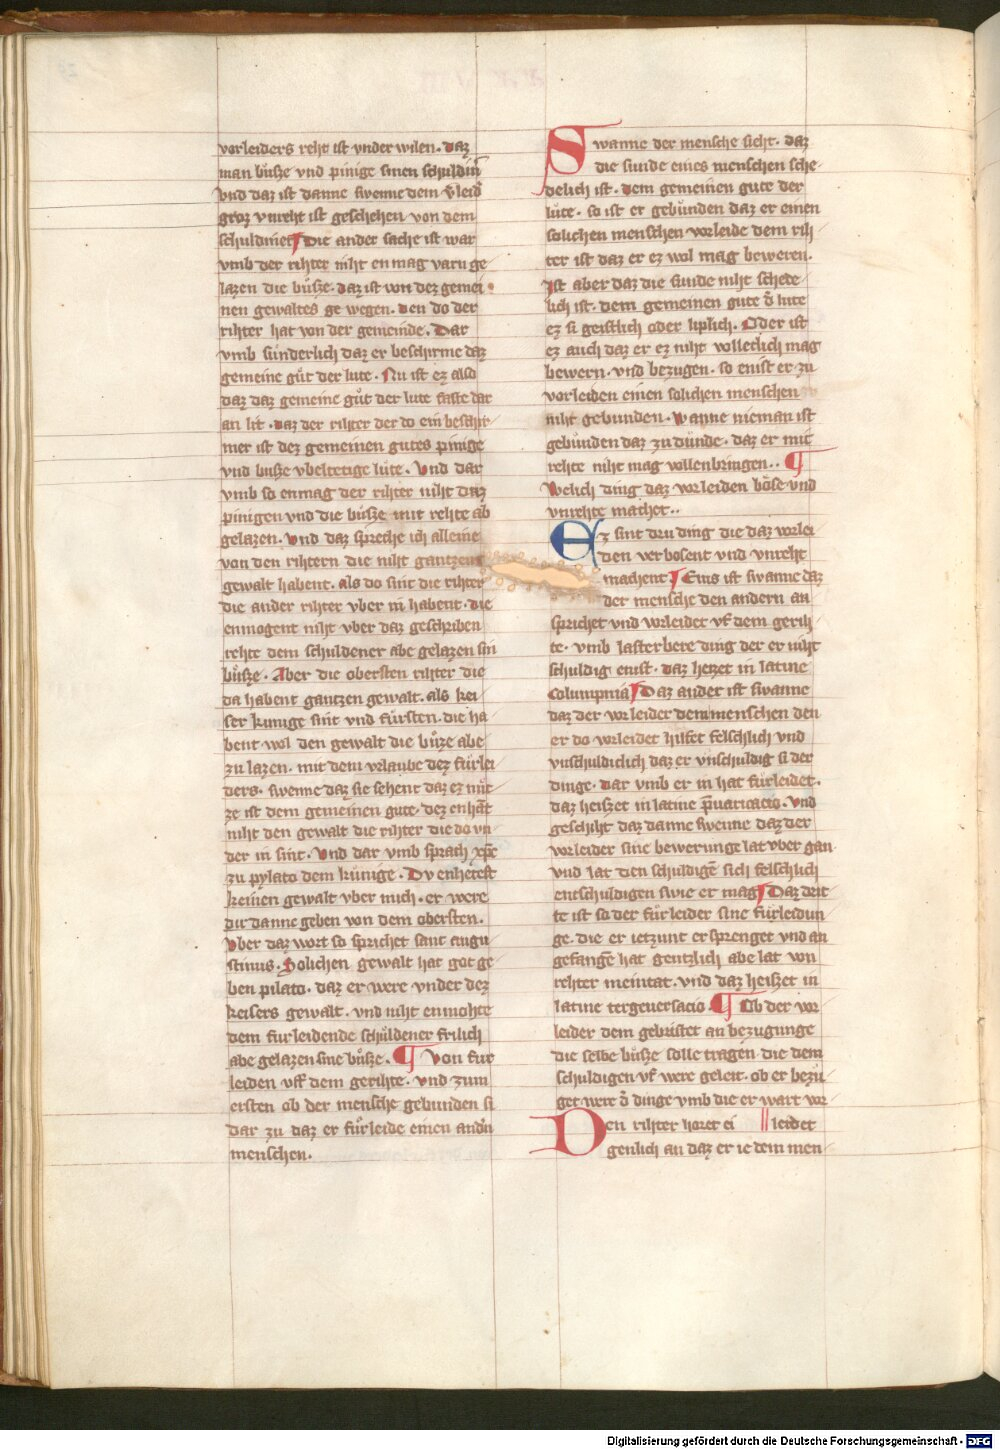 vorleiders reht ist vnder wilen. daz
man bůsze vnd pinige sinen schuldin̄
vnd daz ist danne swenne dem v̄leid̄
groz vnreht ist geschehen von dem
schuldiner Die ander sache ist war
vmb der rihter niht en mag vn ge
lazen die bůsze. daz ist von dez gemei
nen gewaltes ge wegen. den do der
rihter hat von der gemeinde. Dar
vmb sunderlich daz er beschirme daz
gemeine gůt der lute. Nu ist ez also
daz daz gemeine gůt der lute faste dar
an lit. daz der rihter der do ein beschir
mer ist dez gemeinen gutes pinige
vnd busze vbeltetige lůte. Vnd dar
vmb so enmag der rihter niht daz
pinigen vnd die bůsze mit rehte ab
gelazen. Vnd daz spreche ich alleine
von den rihtern die niht gantzen
gewalt habent. als do sint die rihter
die ander rihter vber in habent. die
enmogent niht vber daz geschriben
rehte dem schuldener abe gelazen sin
bůsze. Aber die obersten rihter die
da habent gantzen gewalt. als kei
ser kunige sint vnd fürsten. die ha
bent wol den gewalt die bůze abe
zu lazen. mit dem vrlaube dez fürlei
ders. swenne daz sie sehent daz ez nut
ze ist dem gemeinen gute. dez enhāt
niht den gewalt die rihter die do vn
der in sint. Vnd dar vmb sprach xp̄c
zu pylato dem kůnige. Dv enhetest
keinen gewalt vber mich. er were
dir danne geben von dem obersten.
Vber daz wort so sprichet sant augu
stinus. Solichen gewalt hat got ge
ben pilato. daz er were vnder dez
keisers gewalt. vnd niht enmohte
dem furleidende schůldener frilich
abe gelazen sine bůsze. ¶ Von fur
leiden vff dem gerihte. vnd zum
ersten ob der mensche gebunden si
dar zu daz er fürleide einen andn̄
menschen.
Swanne der mensche siht. daz
die sunde eines menschen sche
delich ist. dem gemeinen gute der
lute. so ist er gebunden daz er einen
solichen menschen vorleide dem rih
ter ist daz er ez wol mag beweren.
Ist aber daz die sunde niht schede
lich ist. dem gemeinen gute d̄ lute
ez si geistlich oder liplich. Oder ist
ez auch daz er ez niht volleclich mag
bewern. vnd bezugen. so enist er zu
vorleiden einen solichen menschen
niht gebunden. wanne nieman ist
gebunden daz zu dunde. daz er mit
rehte niht mag vollenbringen.. ¶
Welich ding daz vorleiden bőse vnd
vnrehte machet..
Ez sint dru ding die daz vorlei
den verbosent vnd vnreht
machent. Eins ist swanne daz
der mensche den andern an
sprichet vnd vorleidet vf dem gerih
te. vmb lasterbere ding der er niht
schuldig enist. daz heizet in latine
Columpnia Daz ander ist swanne
daz der vorleider dem menschen den
er do vorleidet hilfet felschlich vnd
vnschuldiclich daz er vnschuldig si der
dinge. dar vmb er in hat fürleidet.
daz heiszet in latine p̄uaricacio. Vnd
geschiht daz danne swenne daz der
vorleider sine bewerunge lat vber gan
vnd lat den schuldigē sich felschlich
entschuldigen swie er mag Daz drit
te ist so der fürleider sine fürleidun
ge. die er ietzunt ersprenget vnd an
gefangē hat gentzlich abe lat von
rehter meintat. vnd daz heiszet in
latine tergeuersacio. ¶ Ob der vor
leider dem gebristet an bezugunge
die selbe bůsze solle tragen die dem
schuldigen vf were geleit. ob er bezu
get were d̄ dinge vmb die er wart vor
Den rihter horet ei leidet
genlich an daz er ie dem men
Digitalisierung gefördert durch die Deutsche Forschungsgemeinschaft - DFG